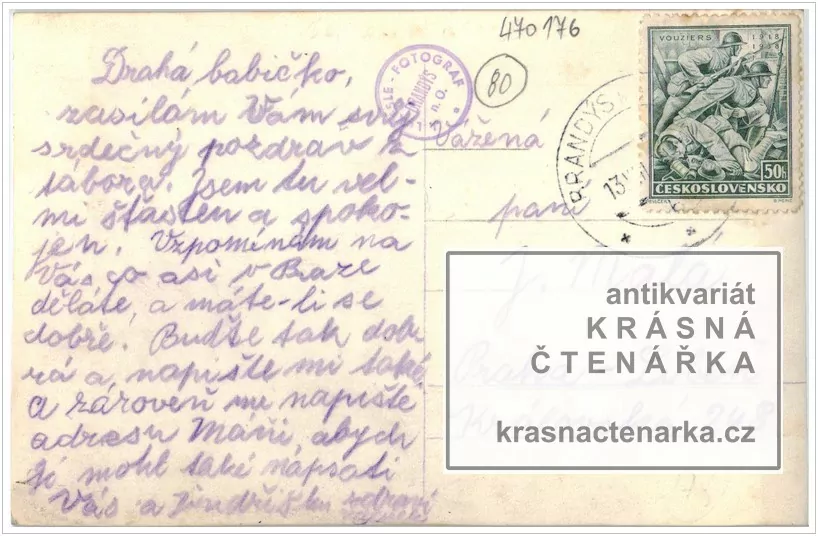 470176
80
Drahá babičko,
zasílám Vám svůj
srdečný pozdrav z
tábora. Jsem tu vel-
mi šťasten a spoko-
jen. Vzpomínám na
Vás co asi v Praze
děláte, a máte-li se
dobře. Buďte tak dob-
rá a napište mi také
a zároveň mi napište
adresu Maňi abych
jí mohl také napsati
Vás a Jindřišku zdraví
FOTOGRAF
BRANDÝS
n. O.
Vážená
paní
J. Malá
Praha
248
BRANDÝS
13
VOUZIERS 1918
1938
50h
ČESKOSLOVENSKO
antikvariát
KRÁSNÁ
ČTENÁŘKA
krasnactenarka.cz